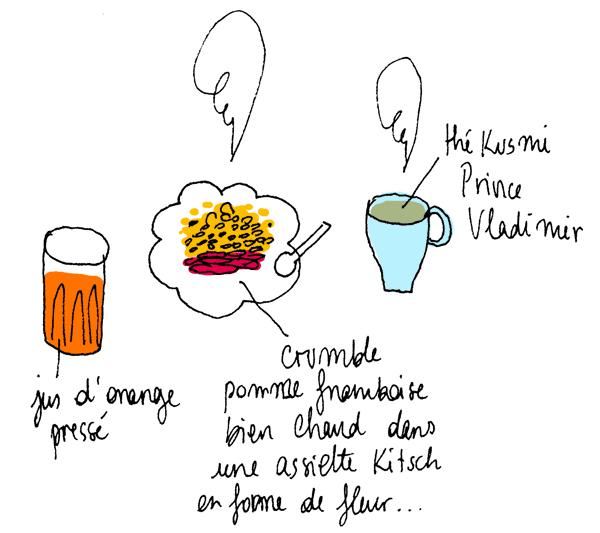 thé Kusmi
Prince
Vladimir
jus d'orange
pressé
crumble
pomme framboise
bien chaud dans
une assiette Kitsch
en forme de fleur...